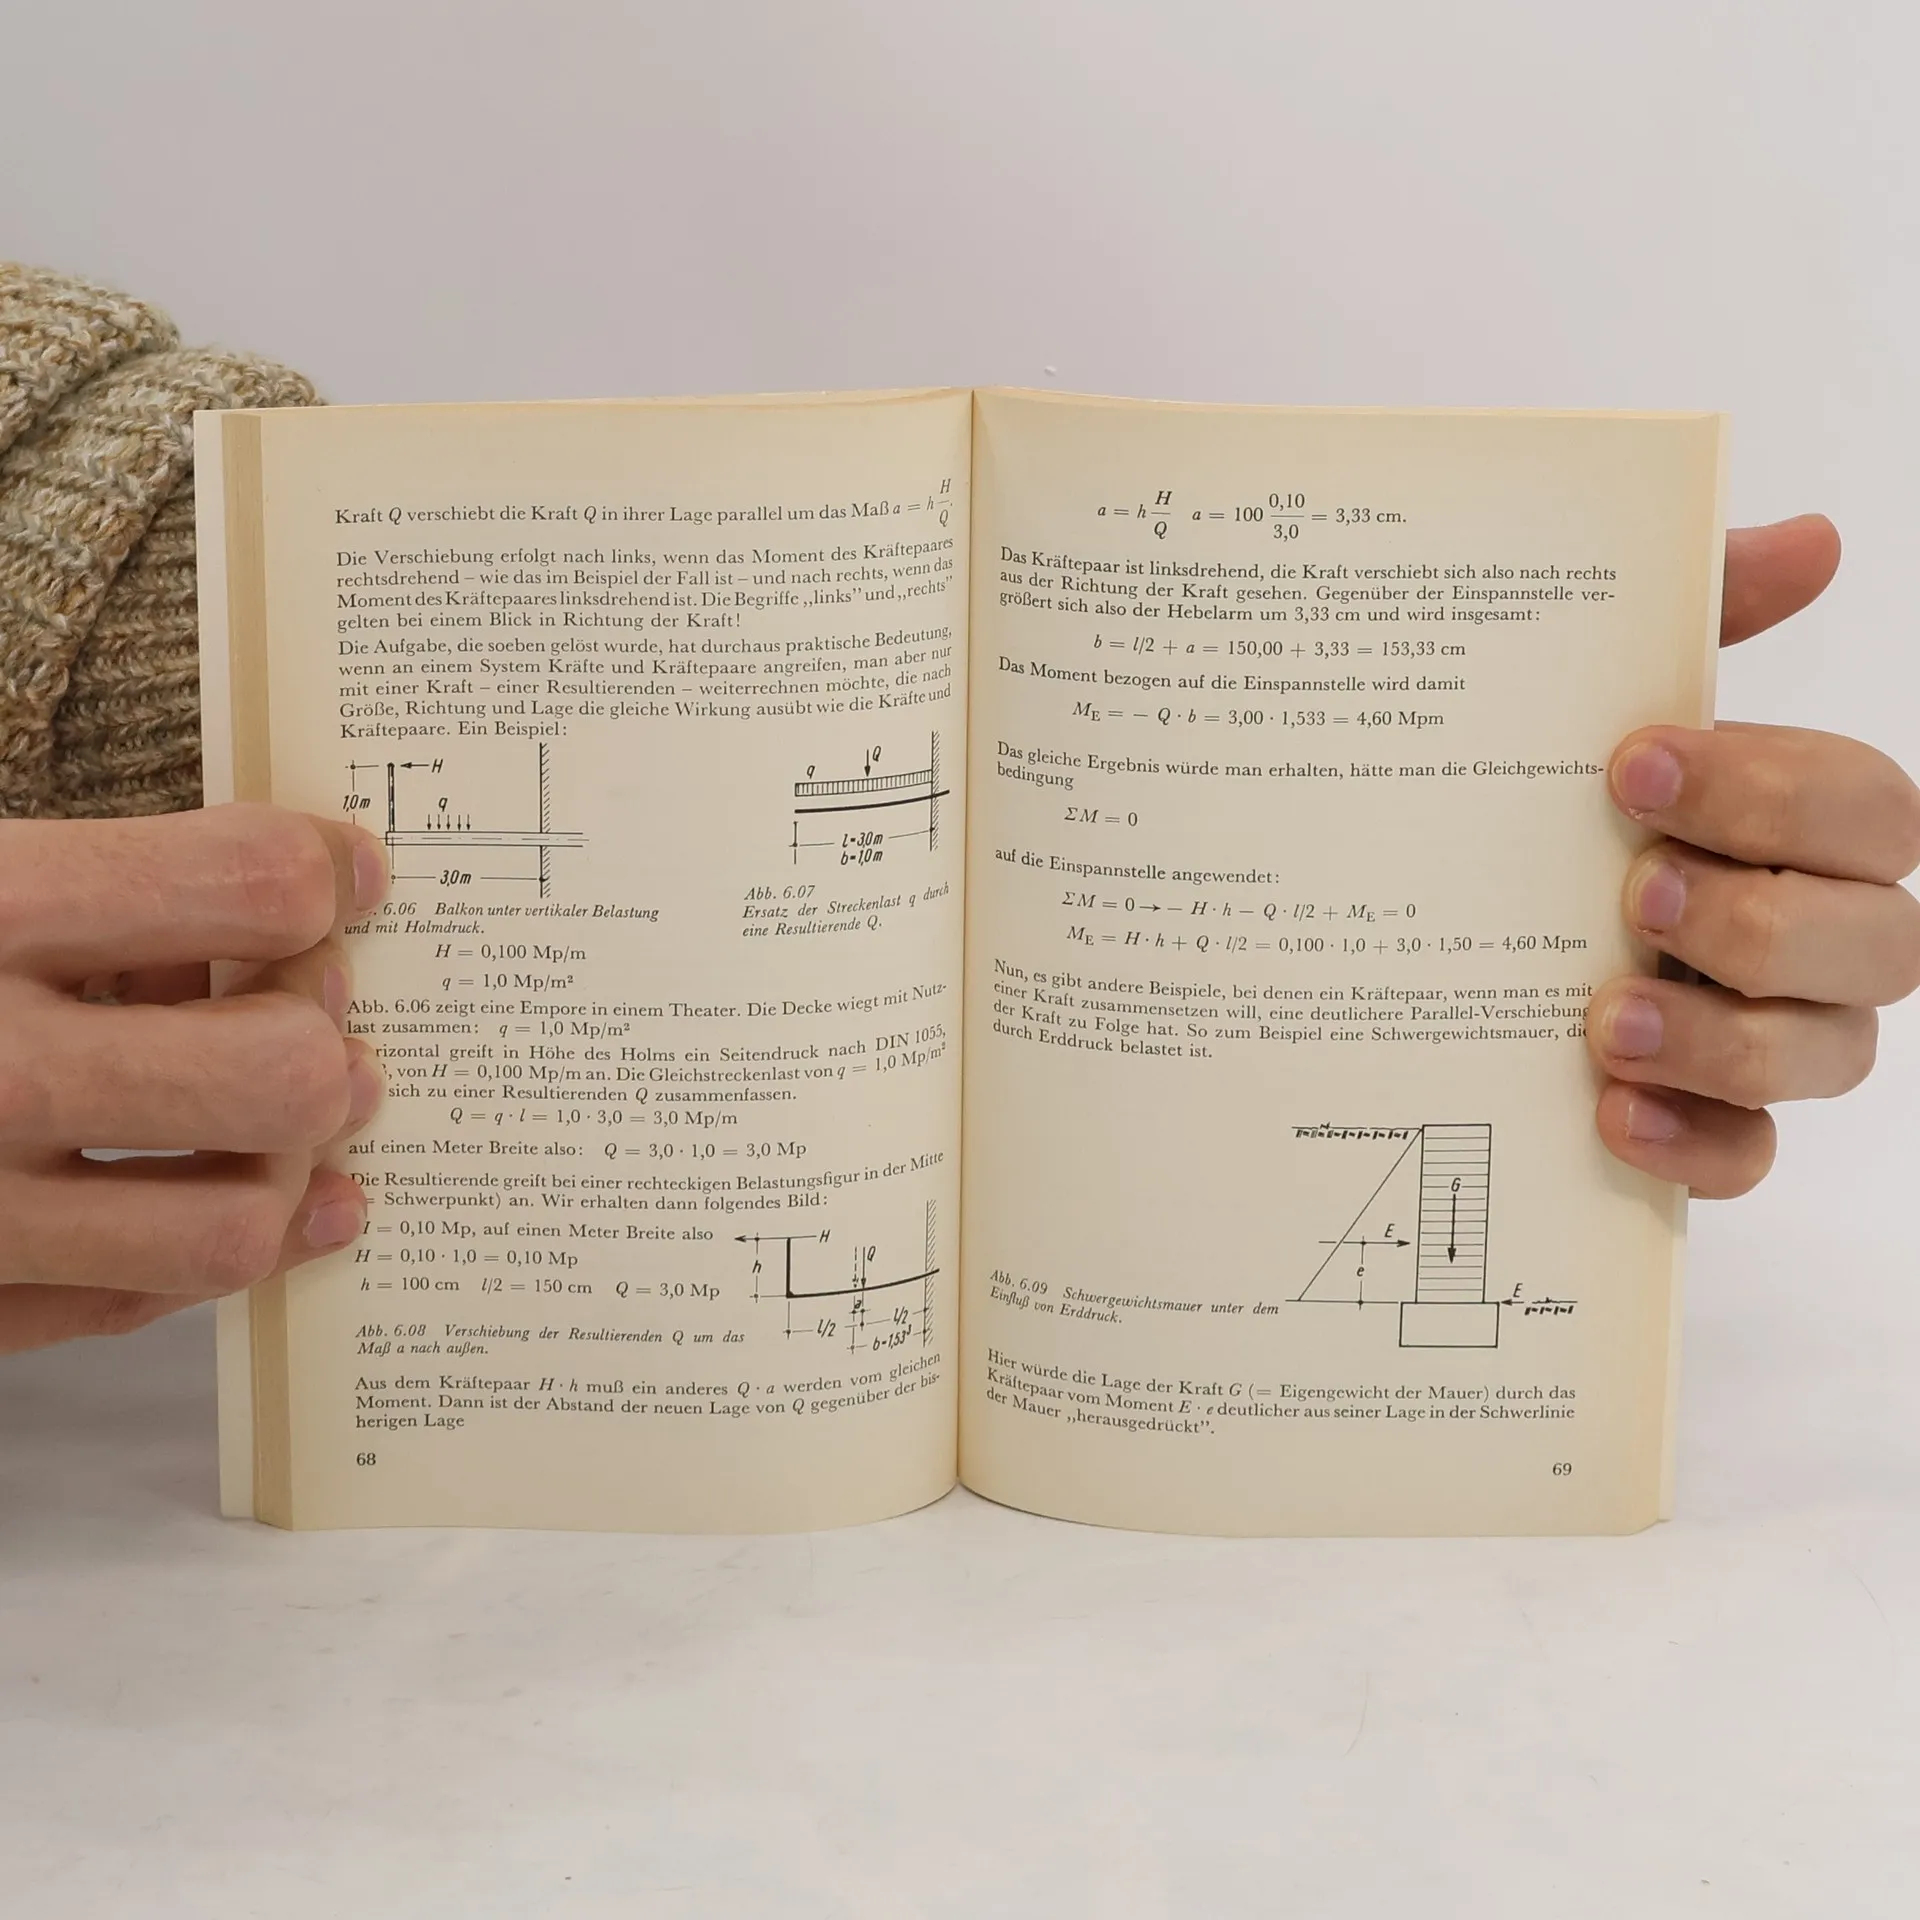 Kraft Q verschiebt die Kraft Q in ihrer Lage parallel um das Maß a = h H/Q.
Die Verschiebung erfolgt nach links, wenn das Moment des Kräftepaares
rechtsdrehend – wie das im Beispiel der Fall ist – und nach rechts, wenn das
Moment des Kräftepaares linksdrehend ist. Die Begriffe „links” und „rechts”
gelten bei einem Blick in Richtung der Kraft!
Die Aufgabe, die soeben gelöst wurde, hat durchaus praktische Bedeutung,
wenn an einem System Kräfte und Kräftepaare angreifen, man aber nur
mit einer Kraft – einer Resultierenden – weiterrechnen möchte, die nach
Größe, Richtung und Lage die gleiche Wirkung ausübt wie die Kräfte und
Kräftepaare. Ein Beispiel:
H
1,0m
q
3,0m
q
Q
l=3,0m
b=1,0m
6.06 Balkon unter vertikaler Belastung
und mit Holmdruck.
Abb. 6.07
Ersatz der Streckenlast q durch
eine Resultierende Q.
H = 0,100 Mp/m
q = 1,0 Mp/m²
Abb. 6.06 zeigt eine Empore in einem Theater. Die Decke wiegt mit Nutz-
last zusammen: q = 1,0 Mp/m²
rizontal greift in Höhe des Holms ein Seitendruck nach DIN 1055,
, von H = 0,100 Mp/m an. Die Gleichstreckenlast von q = 1,0 Mp/m²
sich zu einer Resultierenden Q zusammenfassen.
Q = q · l = 1,0 · 3,0 = 3,0 Mp/m
auf einen Meter Breite also: Q = 3,0 · 1,0 = 3,0 Mp
Die Resultierende greift bei einer rechteckigen Belastungsfigur in der Mitte
= Schwerpunkt) an. Wir erhalten dann folgendes Bild:
= 0,10 Mp, auf einen Meter Breite also
H = 0,10 · 1,0 = 0,10 Mp
h = 100 cm l/2 = 150 cm Q = 3,0 Mp
H
h
Q
a
l/2
l/2
b=1,53³
Abb. 6.08 Verschiebung der Resultierenden Q um das
Maß a nach außen.
Aus dem Kräftepaar H · h muß ein anderes Q · a werden vom gleichen
Moment. Dann ist der Abstand der neuen Lage von Q gegenüber der bis-
herigen Lage
68
a = h H/Q a = 100 0,10/3,0 = 3,33 cm.
Das Kräftepaar ist linksdrehend, die Kraft verschiebt sich also nach rechts
aus der Richtung der Kraft gesehen. Gegenüber der Einspannstelle ver-
größert sich also der Hebelarm um 3,33 cm und wird insgesamt:
b = l/2 + a = 150,00 + 3,33 = 153,33 cm
Das Moment bezogen auf die Einspannstelle wird damit
M_E = – Q · b = 3,00 · 1,533 = 4,60 Mpm
Das gleiche Ergebnis würde man erhalten, hätte man die Gleichgewichts-
bedingung
ΣM = 0
auf die Einspannstelle angewendet:
ΣM = 0 → – H · h – Q · l/2 + M_E = 0
M_E = H · h + Q · l/2 = 0,100 · 1,0 + 3,0 · 1,50 = 4,60 Mpm
Nun, es gibt andere Beispiele, bei denen ein Kräftepaar, wenn man es mit
einer Kraft zusammensetzen will, eine deutlichere Parallel-Verschiebung
der Kraft zu Folge hat. So zum Beispiel eine Schwergewichtsmauer, die
durch Erddruck belastet ist.
G
E
e
E
Abb. 6.09 Schwergewichtsmauer unter dem
Einfluß von Erddruck.
Hier würde die Lage der Kraft G (= Eigengewicht der Mauer) durch das
Kräftepaar vom Moment E · e deutlicher aus seiner Lage in der Schwerlinie
der Mauer „herausgedrückt”.
69